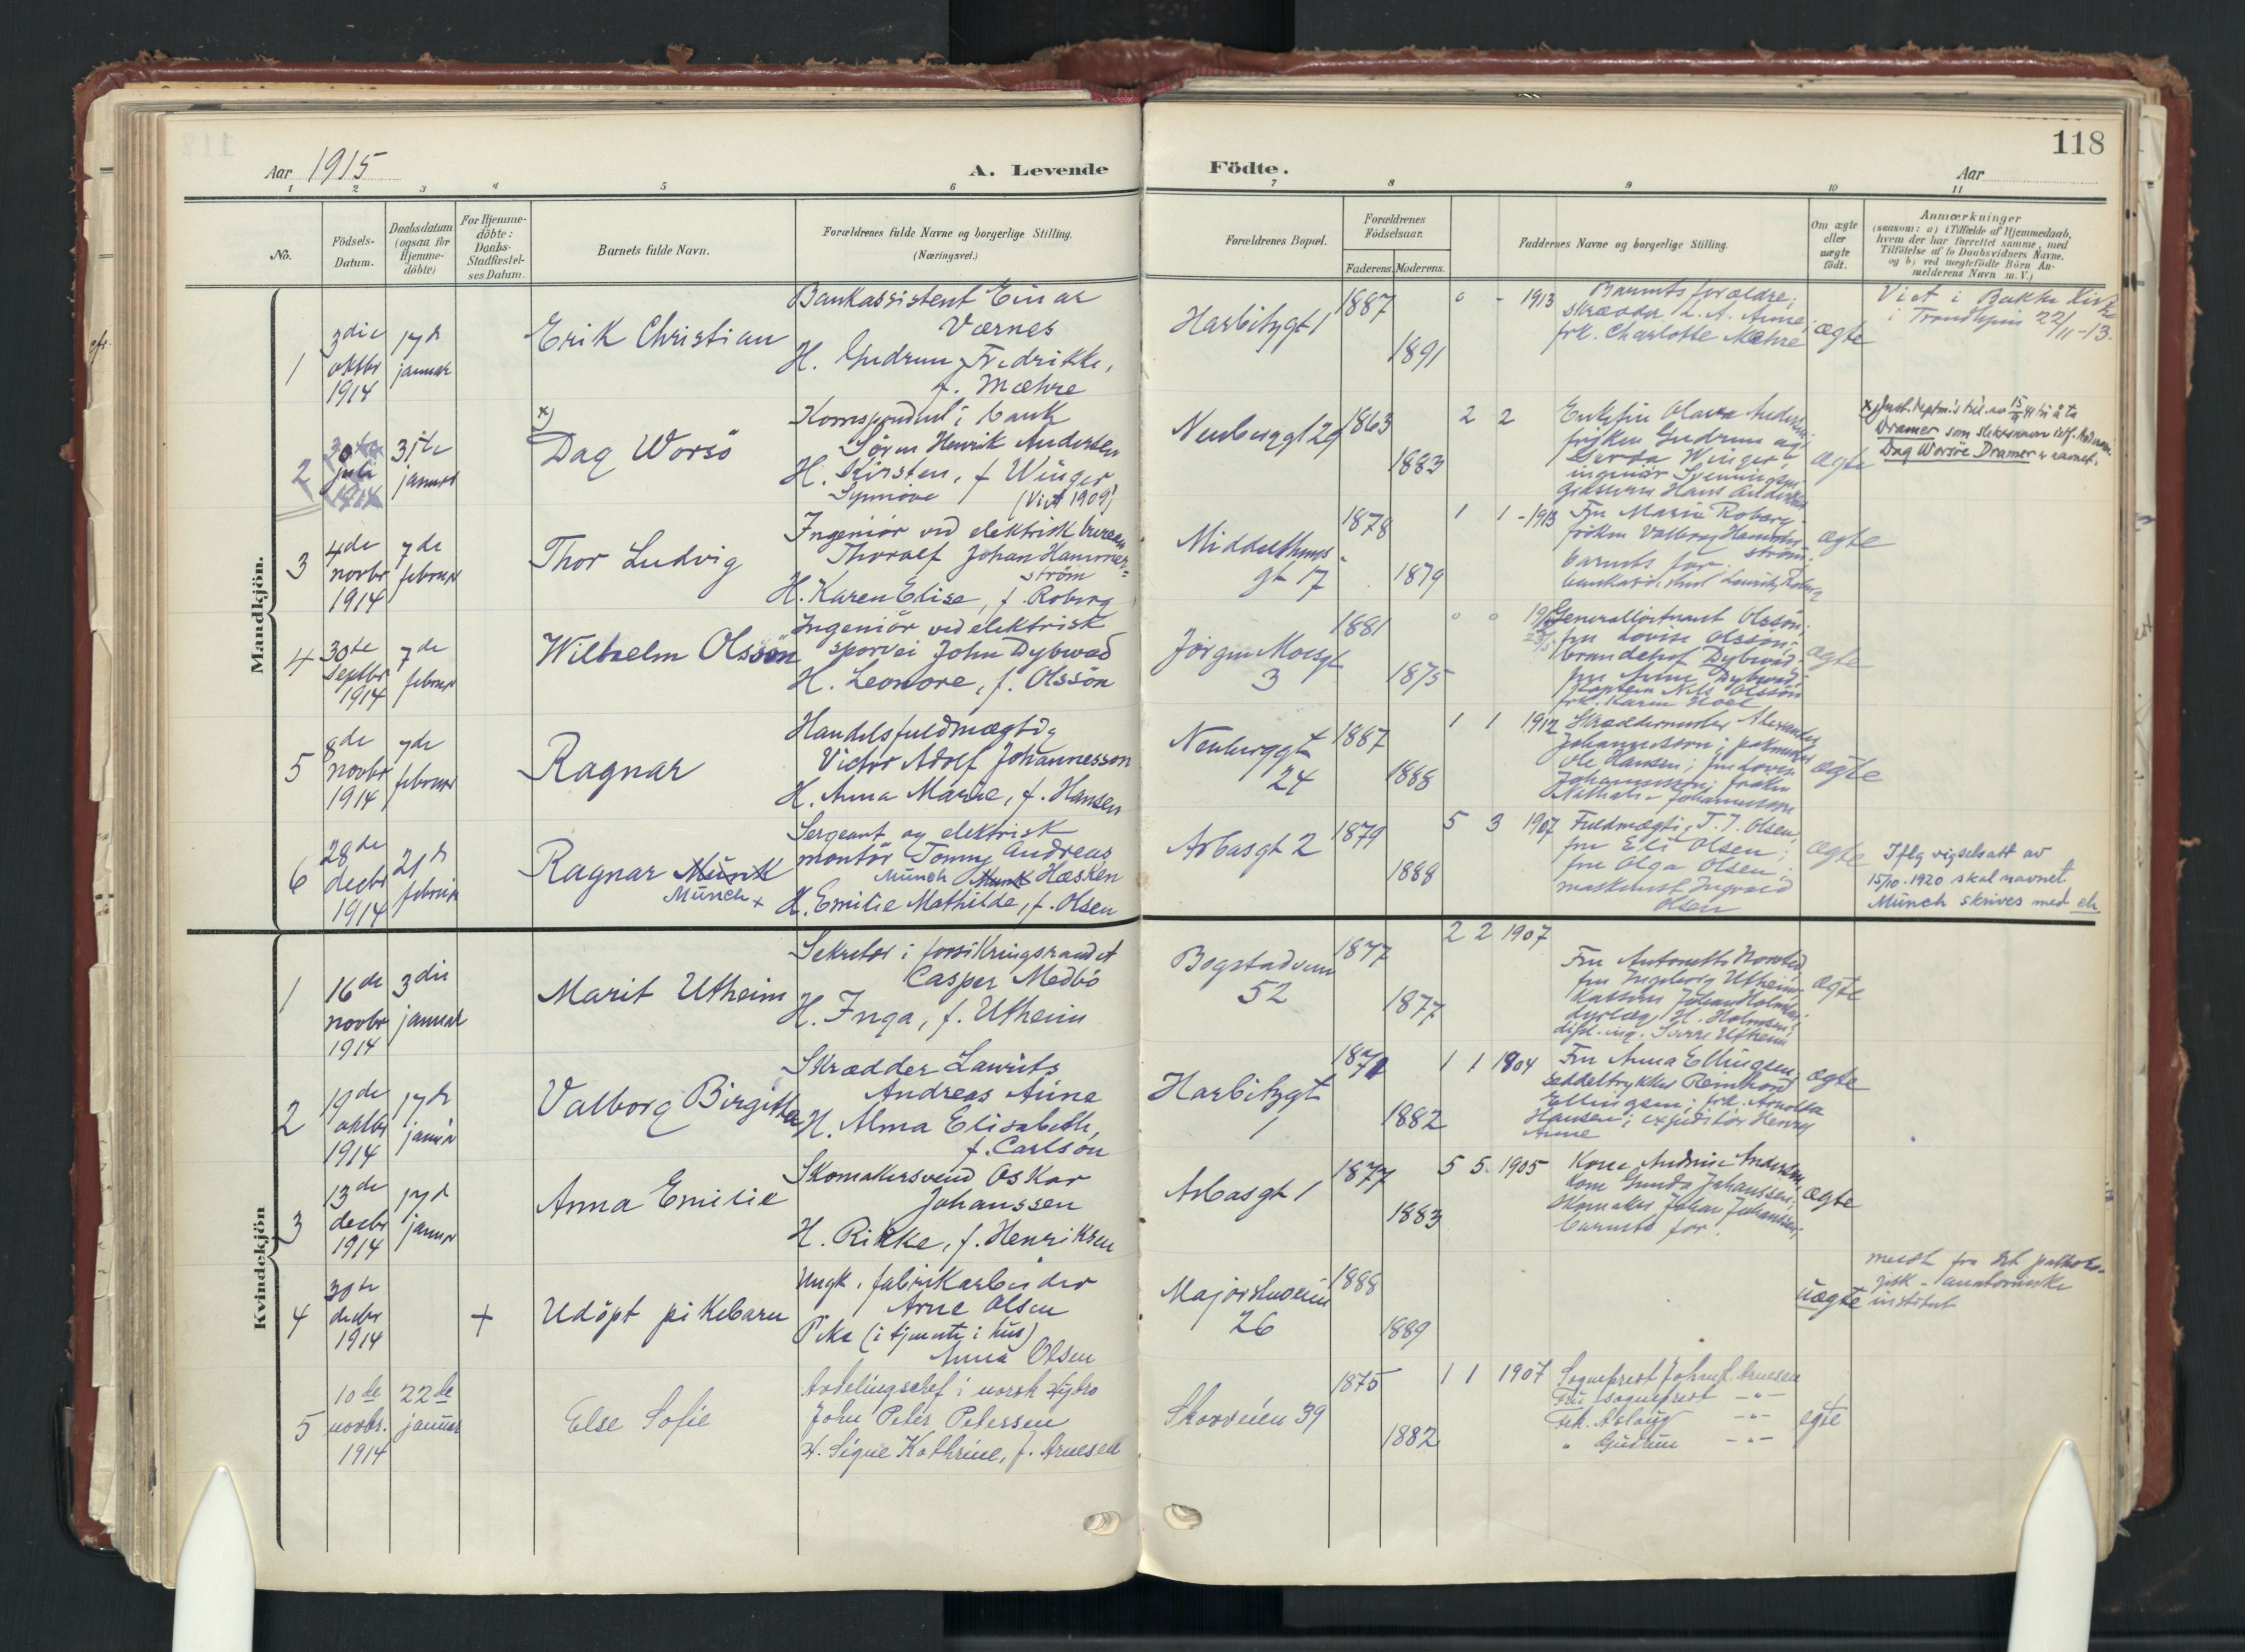 118
Aar 1915
A. Levende
Födte.
Aar
1 2 3 4 5 6 7 8 9 10 11
No.
Födsels-
Datum.
Daabsdatum
(ogsaa for
Hjemme-
döbte)
For Hjemme-
döbte:
Daabs-
Stadfestel-
ses Datum.
Barnets fulde Navn.
Forældrenes fulde Navne og borgerlige Stilling.
(Næringsvei.)
Forældrenes Bopæl.
Forældrenes
Födselsaar.
Faderens. Moderens.
Faddernes Navne og borgerlige Stilling.
Om ægte
eller
uægte
födt.
Anmærkninger
(saasom: a) i Tilfælde af Hjemmedaab,
hvem der har forrettet samme, med
Tilföielse af to Daabsvidners Navne.
og b) ved uægtefödte Börn An-
melderens Navn m. V.)
Mandkjön.
1
3die
oktbr
1914
17de
januar
Erik Christian
Bankassistent Einar
Værnes
H. Gudrun Fredrikke,
f. Mæhre
Harbitzgt 1
1887
1891
0 - 1913
Barnets forældre;
skrædder L. A. Aune;
frk. Charlotte Mæhre
ægte
Viet i Bakke Kirke
i Trondhjem 22/11-13.
2
30te
juli
1914
31te
januar
x)
Dag Worsö
Korrespondent i bank
Sören Henrik Andersen
H. Kirsten, f Winger
Synnöve (Viet 1909)
Neuberggt 29
1863
1883
2 2
fröken Gudrun og
Gerda Winger;
ægte
Dramer som slektsnavn
Dag Worsöe Dramer
3
4de
novbr
1914
7de
februar
Thor Ludvig
Ingeniör ved elektrisk bureau
Thoralf Johan Hammer-
ström
H. Karen Elise, f. Roberg
Middelthuns-
gt 17
1878
1879
1 1 - 1913
Fru Marie Roberg
fröken Valborg Hammer
ström;
barnets far;
ægte
4
30te
septbr
1914
7de
februar
Wilhelm Olssön
Ingeniör ved elektrisk
sporvei John Dybwad
H. Leonore, f. Olssön
Jörgen Moesgt
3
1881
1875
0 0
Generallöitnant Olssön;
fru Lovise Olssön;
brandchef Dybwad;
fru Anna Dybwad;
kaptein Nils Olssön
frk. Karen Hoel
ægte
5
8de
novbr
1914
7de
februar
Ragnar
Handelsfuldmægtig
Victor Adolf Johannesson
H. Anna Marie, f. Hansen
Neuberggt
24
1887
1888
1 1 1912
Skræddermester Alexander
Johannesson; pakmester
Ole Hansen; fru Lovise
Johannesson; fröken
Nathalie Johannesson
ægte
6
28de
decbr
1914
21de
februar
Ragnar Munk
Münch +
Sergeant og elektrisk
montör Tommy Andreas
Münch Munk Hæsken
H. Emilie Mathilde, f. Olsen
Arbosgt 2
1879
1888
5 3 1907
Fuldmægtig T. J. Olsen,
fru Eli Olsen;
fru Olga Olsen;
maskinist Ingvald
Olsen
ægte
Iflg vigselsatt av
15/10.1920 skal navnet
Münch skrives med ch
Kvindekjön
1
16de
novbr
1914
3die
januar
Marit Utheim
Sekretær i forsikringsraadet
Casper Medbö
H. Inga, f. Utheim
Bogstadveien
52
1877
1877
2 2 1907
fru Ingeborg Utheim;
dyrlæge H. Holmsen;
dipl. ing. Sverre Utheim
ægte
2
19de
oktbr
1914
17de
januar
Valborg Birgitha
Skrædder Laurits
Andreas Aune
H. Alma Elisabeth,
f. Carlson
Harbitzgt
1
1871
1882
1 1 1904
Fru Anna Ellingsen,
seddeltrykker Reinhard
Ellingsen; frk. Arnolda
Hansen; expeditör Henry
Aune
ægte
3
13de
decbr
1914
17de
januar
Anna Emilie
Skomakersvend Oskar
Johanssen
H. Rikke, f. Henriksen
Arbosgt 1
1877
1883
5 5. 1905
Kone Gunda Johanssen;
Skomaker Johan Johanssen;
barnets far.
ægte
4
30te
decbr
1914
+
Udöpt pikebarn
Ungk. fabrikarbeider
Arne Olsen
Pike (i tjeneste i hus)
Anna Olsen
Majorstuveien
26
1888
1889
uægte
meldt fra det patholo-
gisk-anatomiske
institut
5
10de
novbr.
1914
22de
januar
Else Sofie
Avdelingschef i norsk Hydro
John Peter Petersen
H. Signe Kathrine, f. Arnesen
Skovveien 39
1875
1882
1 1 1907
Sogneprest Johan L. Arnesen
Fru sogneprest -"-
Frk. Aslaug -"-
" Gudrun -"-
egte